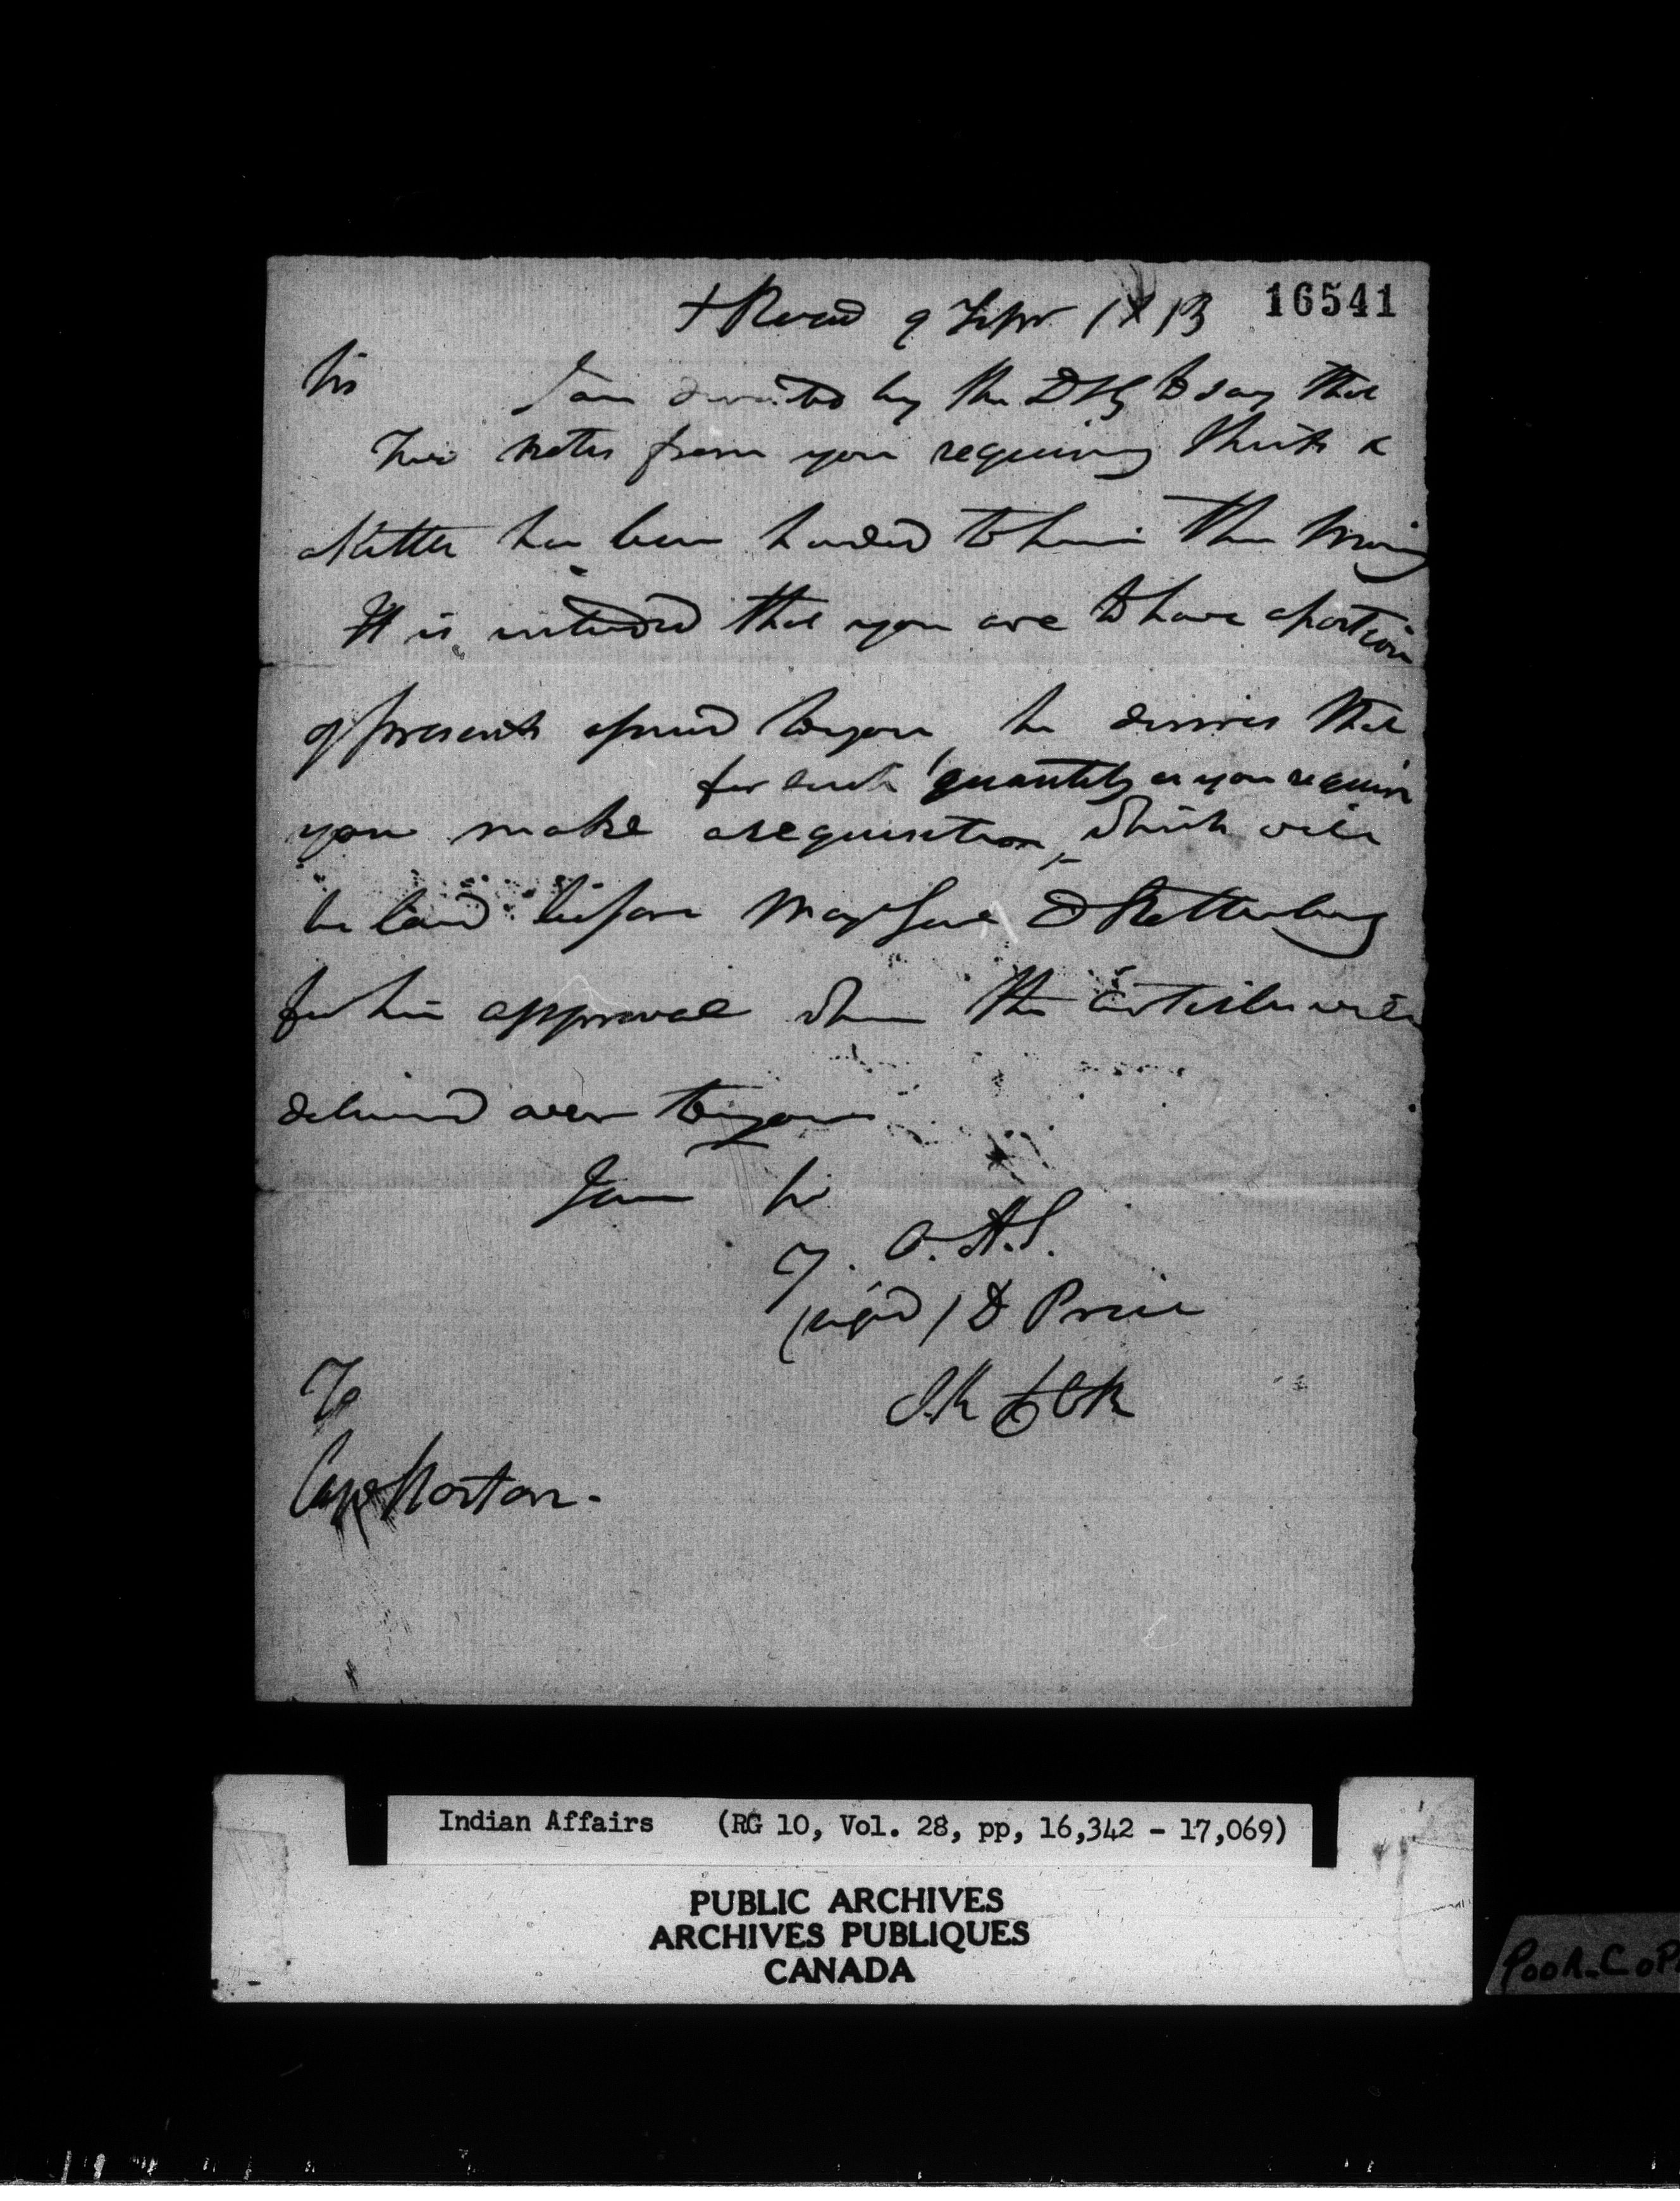 + Road 9 Sepr 1813 16541
Sir I am directed by the DSG to say that
Two notes from you requiring Shirts &
Kettles has been handed to him this Morning
It is intended that you are to have a portion
of presents to you, he desires that
for such quantity as you require
you make a requisition, which will
be laid before Maj Genl D Rottenburg
for his approval when the articles will
delivered over to you
I am Sir
Y. O. H. S.
(signed) D Price
To
Capt Norton.
Indian Affairs (RG 10, Vol. 28, pp, 16,342 - 17,069)
PUBLIC ARCHIVES
ARCHIVES PUBLIQUES
CANADA
POOR COP